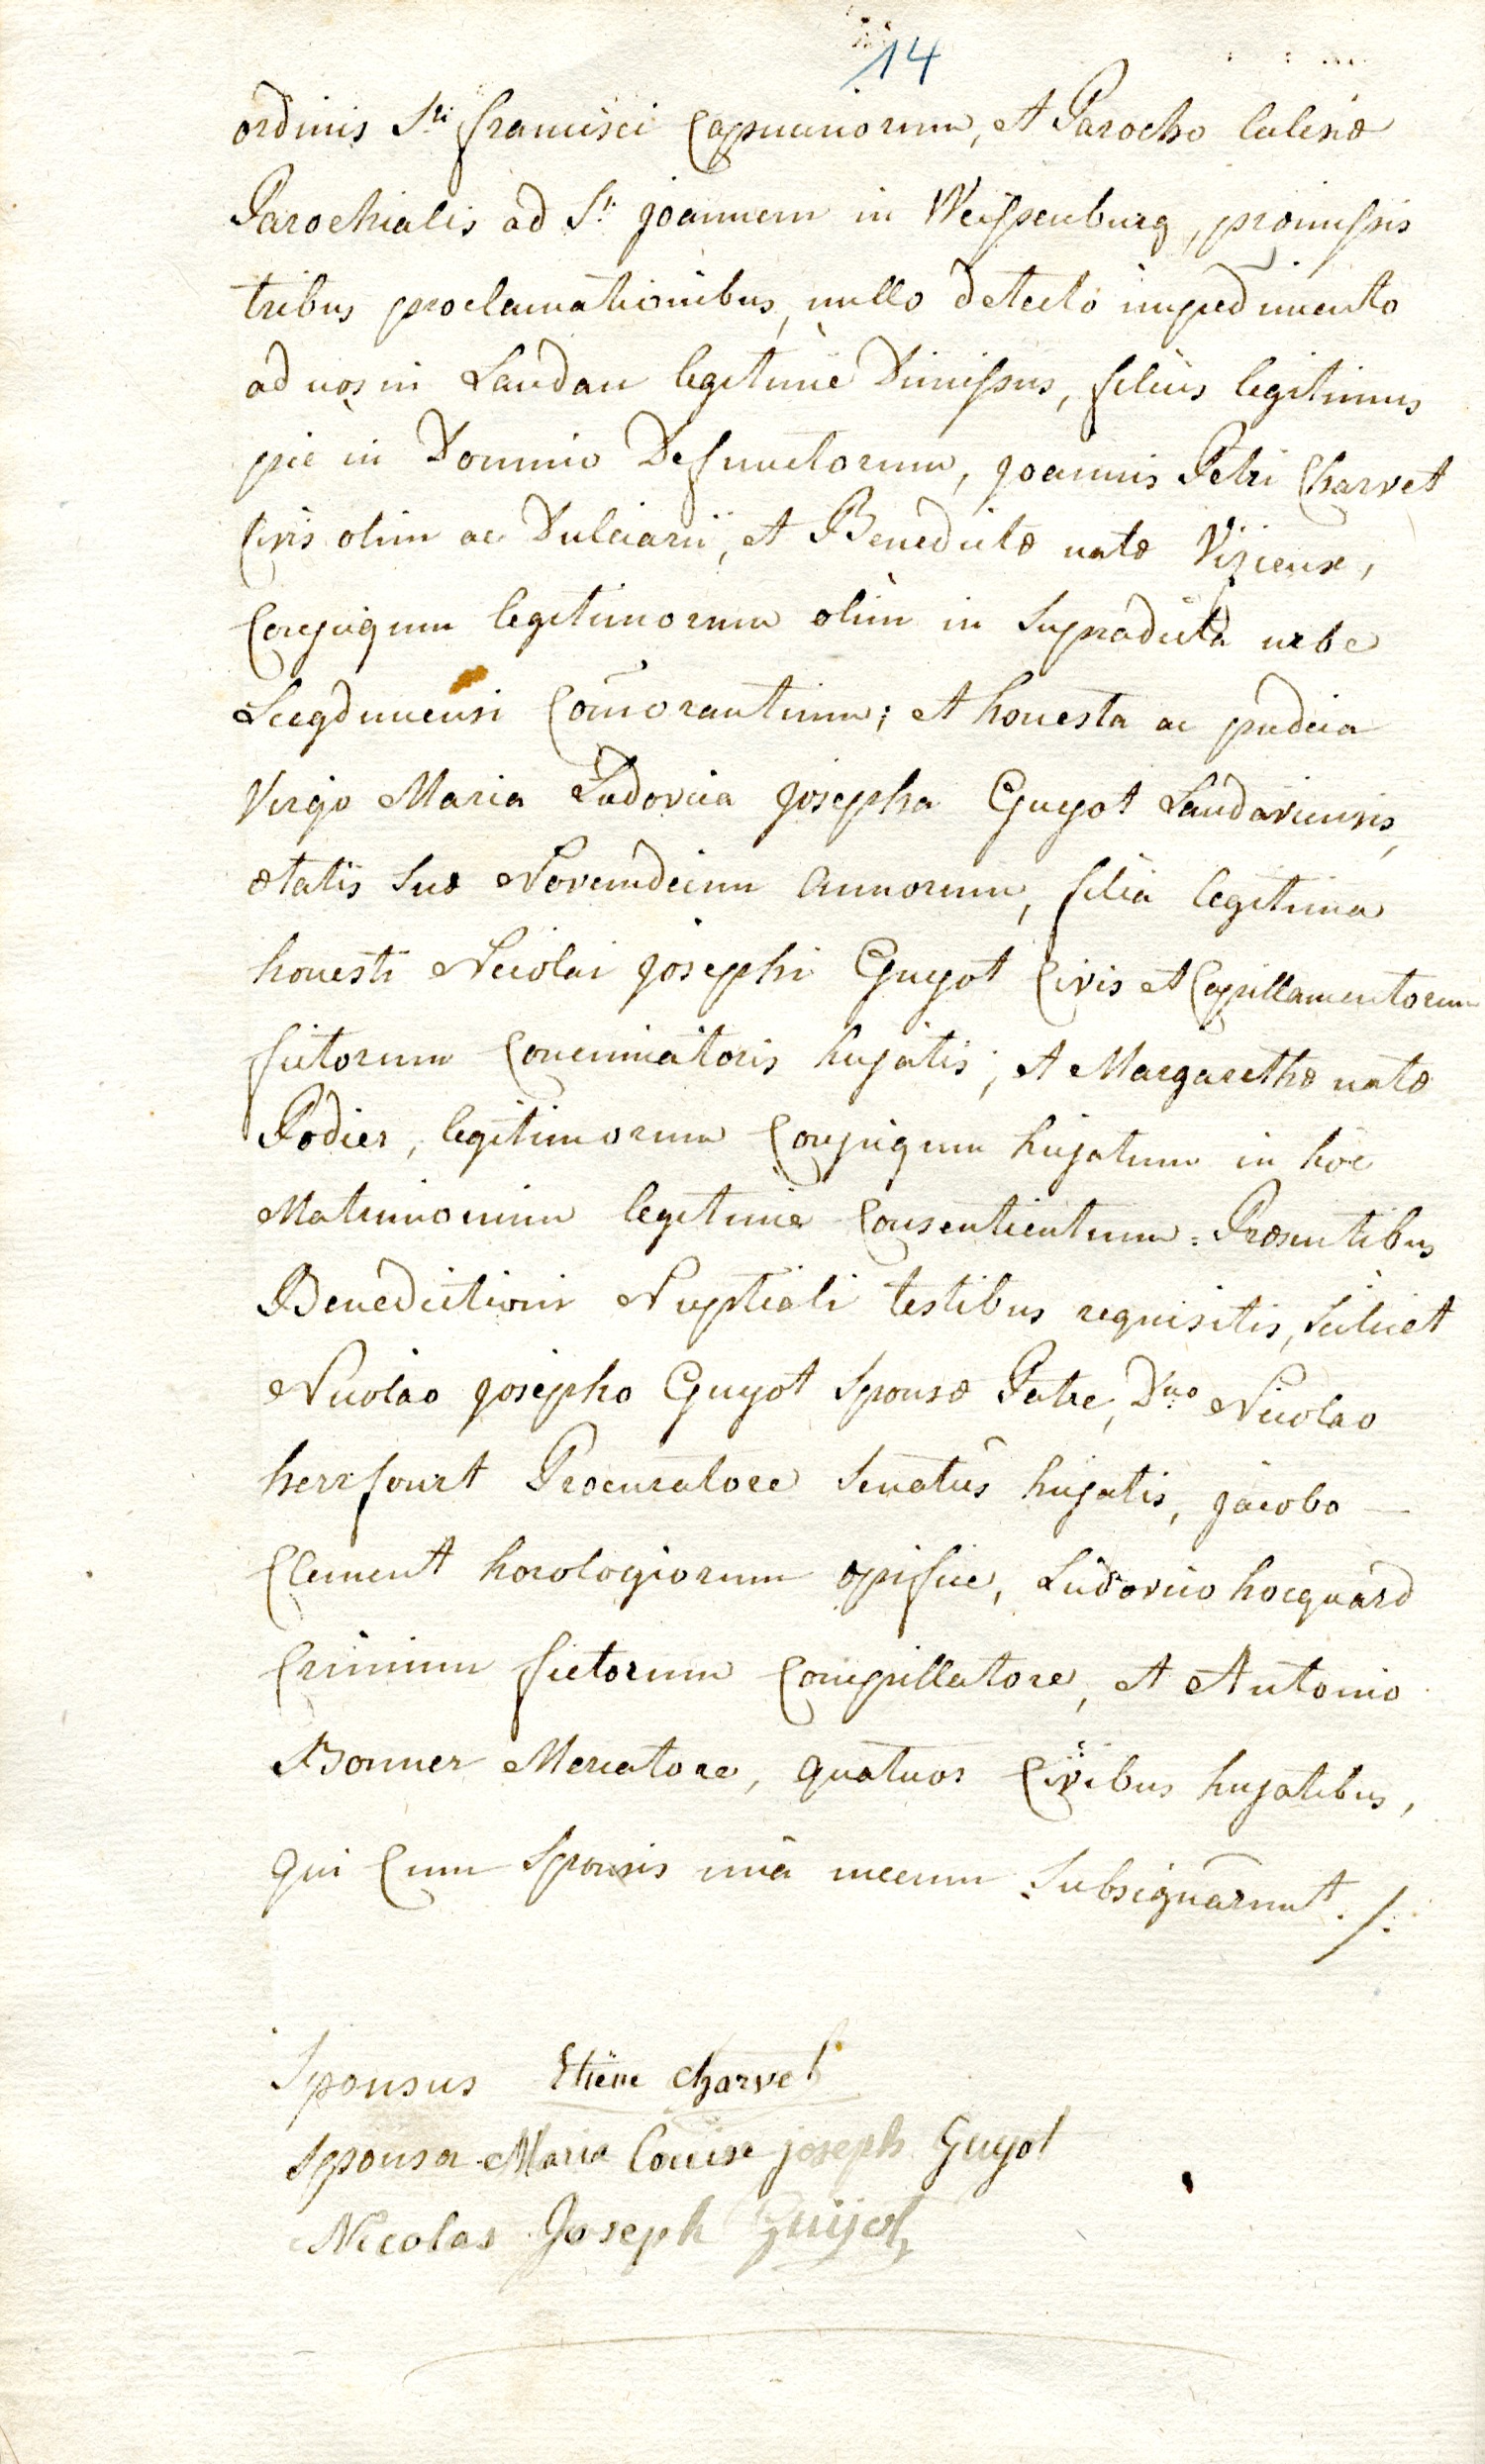 14
ordinis Sti francisci Capucinorum, et Parocho Eclesiæ
Parochialis ad St. joannem in Weissenburg, præmissis
tribus proclamationibus, nullo detecto impedimento
ad nos in Landau legitime Dimissus, filius legitimus
pie in Domino Defunctorum, joannis Petri Charvet
Civis olim ac Dulciarii, et Benedictæ natæ
Conjugum legitimorum olim in Supradicta urbe
Lugdunensi Com̄orantium; et honesta ac pudica
Virgo Maria Ludovica josepha Guyot Landaviensis,
ætatis suæ Novemdecim Annorum, filia legitima
honesti Nicolai josephi Guyot Civis et Capillamentorum
fictorum Concinnatoris hujatis, et Margarethæ natæ
Podier, legitimorum Conjugum hujatum in hoc
Matrimonium legitime Consentientium. Præsentibus
Benedictioni Nuptiali testibus requisitis, Scilicet
Nicolao josepho Guyot Sponsæ Patre, Dno Nicolao
herrfourt Procuratore Senatus hujatis, jacobo —
Clement horologiorum opifice, Ludovico hocquard
Crinium fictorum Compillatore, et Antonio
Bonner Mercatore, quatuor Civibus hujatibus,
qui Cum Sponsis una mecum Subsignarunt ./.
Sponsus Etiene Charvet
Sponsa Maria Louise joseph Guyot
Nicolas Joseph Guijot